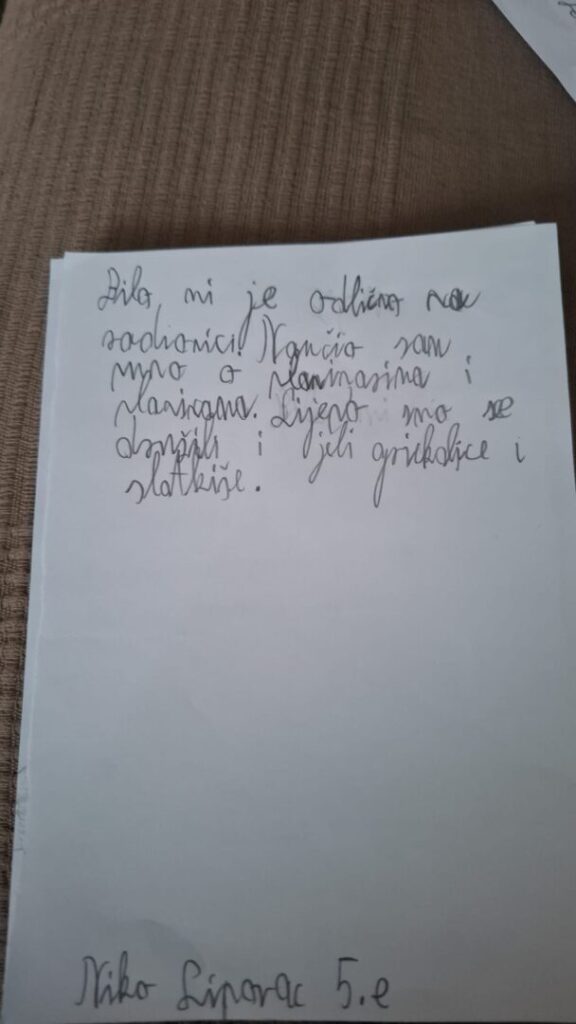 Bilo mi je odlično na
radionici. Naučio sam
puno o planinarima i
planinama. Lijepo smo se
družili i jeli grickalice i
slatkiše.
Niko Lipovac 5.e